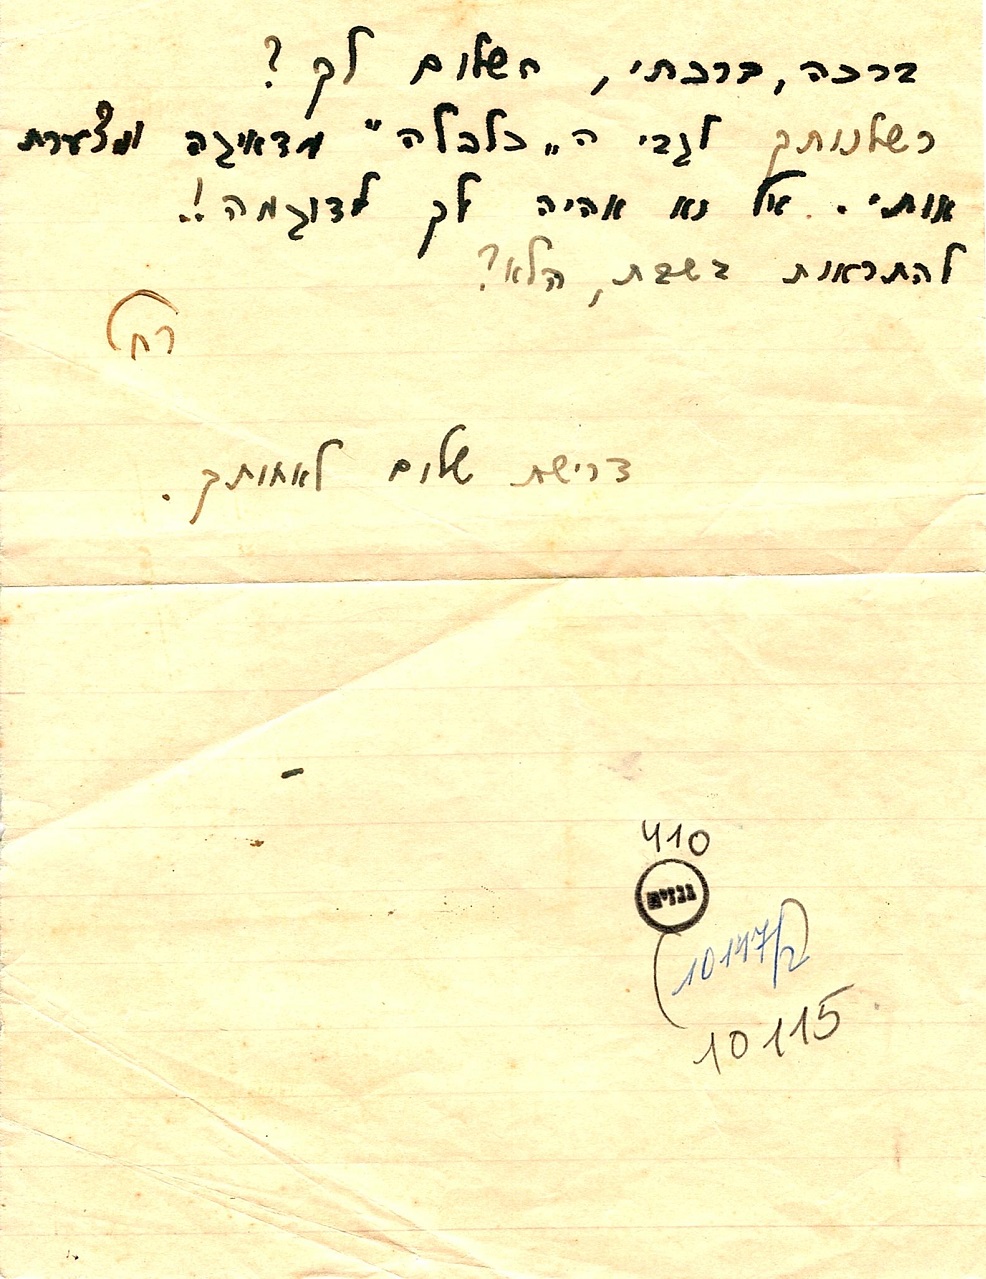 ברכה, ברכתי, השלום לך?
רשלנותך לגבי ה„כלכלה" מדאיגה ומצערת
אותי. אל נא אהיה לך לדוגמה!.
להתראות בשבת, הלא?
רחל
דרישת שלום לאחותך.
410
גנזים
10147/2
10115